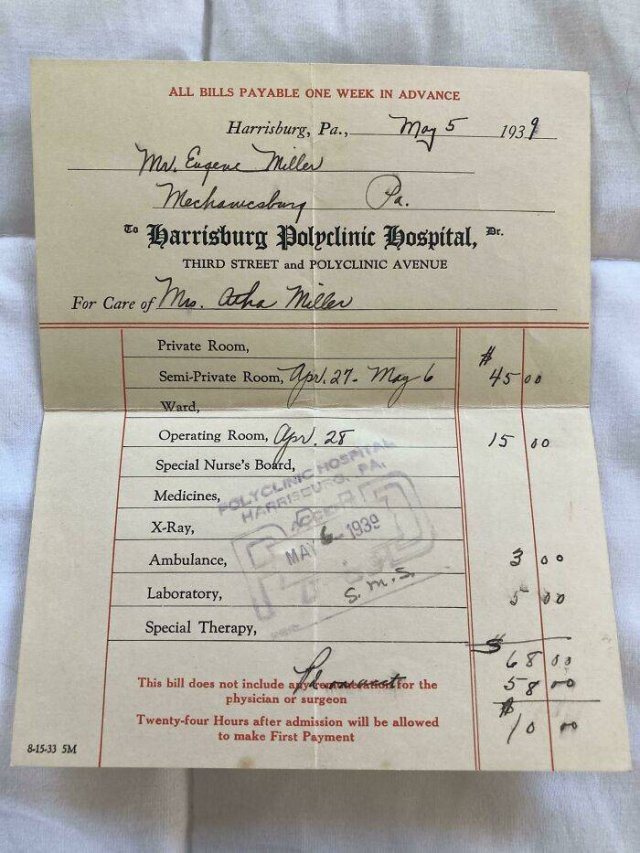 ALL BILLS PAYABLE ONE WEEK IN ADVANCE
Harrisburg, Pa., May 5 1939
Mr. Eugene Miller
Mechanicsburg Pa.
To Harrisburg Polyclinic Hospital, Dr.
THIRD STREET and POLYCLINIC AVENUE
For Care of Mrs. Miller
Private Room,
Semi-Private Room, Apr. 27 - May 6 $ 45 00
Ward,
Operating Room, Apr. 28 15 00
Special Nurse's Board,
POLYCLINIC HOSPITAL
HARRISBURG, PA.
Medicines,
X-Ray,
MAY 6 1939
PAID
Ambulance, 3 00
Laboratory, S.M.S. 5 00
Special Therapy,
$ 68 00
This bill does not include any for the 58 00
physician or surgeon
Twenty-four Hours after admission will be allowed $ 10 00
to make First Payment
8-15-33 5M